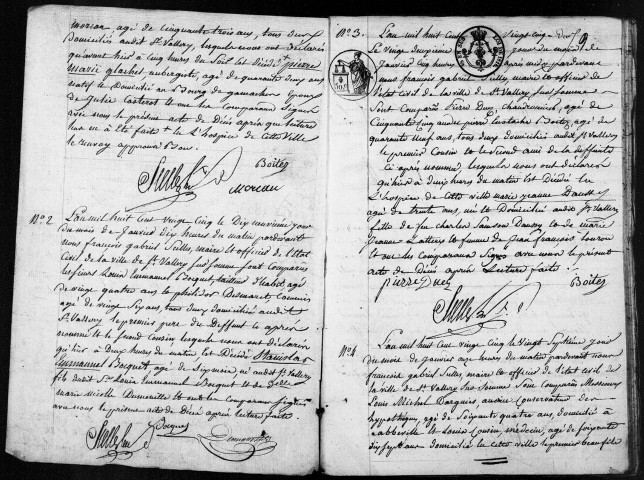 moreau, agé de cinquante trois ans, tous deux
Domiciliés audit St. Vallery, lesquels nous ont déclaré
qu'avant hier à cinq heures du soir est Décédé pierre
marie aubergiste, agé de quarante deux ans
natif et Domicilié au Bourg de gamaches Epoux
de Julie Casterot et ont les Comparans Signé
avec nous le présent acte de Décès après que lecture
leur en a été faite à L'hospice de cette Ville
le renvoy approuvé Bon.
Boites
Moreau
N° 2
L'an mil huit cent vingt cinq le Dix neuvième jour
du mois de Janvier dix heures du matin pardevant
nous françois gabriel maire et officier de l'Etat
Civil de la ville de St. Vallery sur Somme sont comparus
les sieurs Louis Emmanuel Bocquet, tailleur d'habit, agé
de vingt quatre ans et philidor Desmarest Commis
agé de vingt Six ans, tous deux Domiciliés audit
St. Vallery le premier pere du Deffunt ci après
nommé et le second cousin lesquels nous ont déclaré
qu'hier à Deux heures du matin est Décédé Stanislas
Emmanuel Bocquet agé de Six mois, né audit St. Vallery
fils dudit Sr. Louis Emmanuel Bocquet et de
marie nicolle et ont les Comparans Signé
avec nous le présent acte de Décès après lecture faite
Bocquet
N° 3.
L'an mil huit cent vingt cinq
Le vingt deuxième jour du mois de
Janvier cinq heures après midi pardevant
nous françois gabriel maire et officier de
l'état civil de la ville de St Vallery sur Somme
Sont Comparus pierre Duez Charbonnier, agé de
Cinquante Cinq ans et pierre Eustache Boites, agé de
quarante neuf ans, tous deux domiciliés audit St Vallery
le premier Cousin et le second ami de la deffunte
ci après nommée, lesquels nous ont déclaré
qu'hier à deux heures du matin est Décédé en
L'hospice de cette ville marie jeanne
agé de trente ans, née et Domiciliée audit St Vallery
fille de feu Charles et de marie
jeanne et femme de Jean françois
et ont les Comparans Signé avec nous le présent
acte de Décès après Lecture faite.
pierre Duez
Boites
N° 4
L'an mil huit cent vingt cinq le vingt Septième jour
du mois de janvier heures du matin pardevant nous
françois gabriel maire et officier de l'état civil de
la ville de St Vallery sur Somme Sont Comparus Messieurs
Louis Michel ancien Conservateur des
hypothèques, agé de Soixante quatre ans, domicilié à
abbeville et Louis Cousin, médecin, agé de Soixante
dix sept ans domicilié en cette ville le premier beau fils